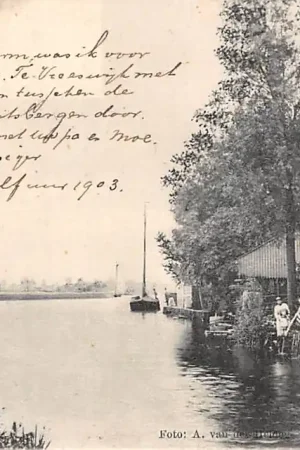 was ik voor
Te Vreeswijk met
n tusschen de
itsbergen door.
met uw pa en moe.
lf uur 1903.
Foto: A. van de